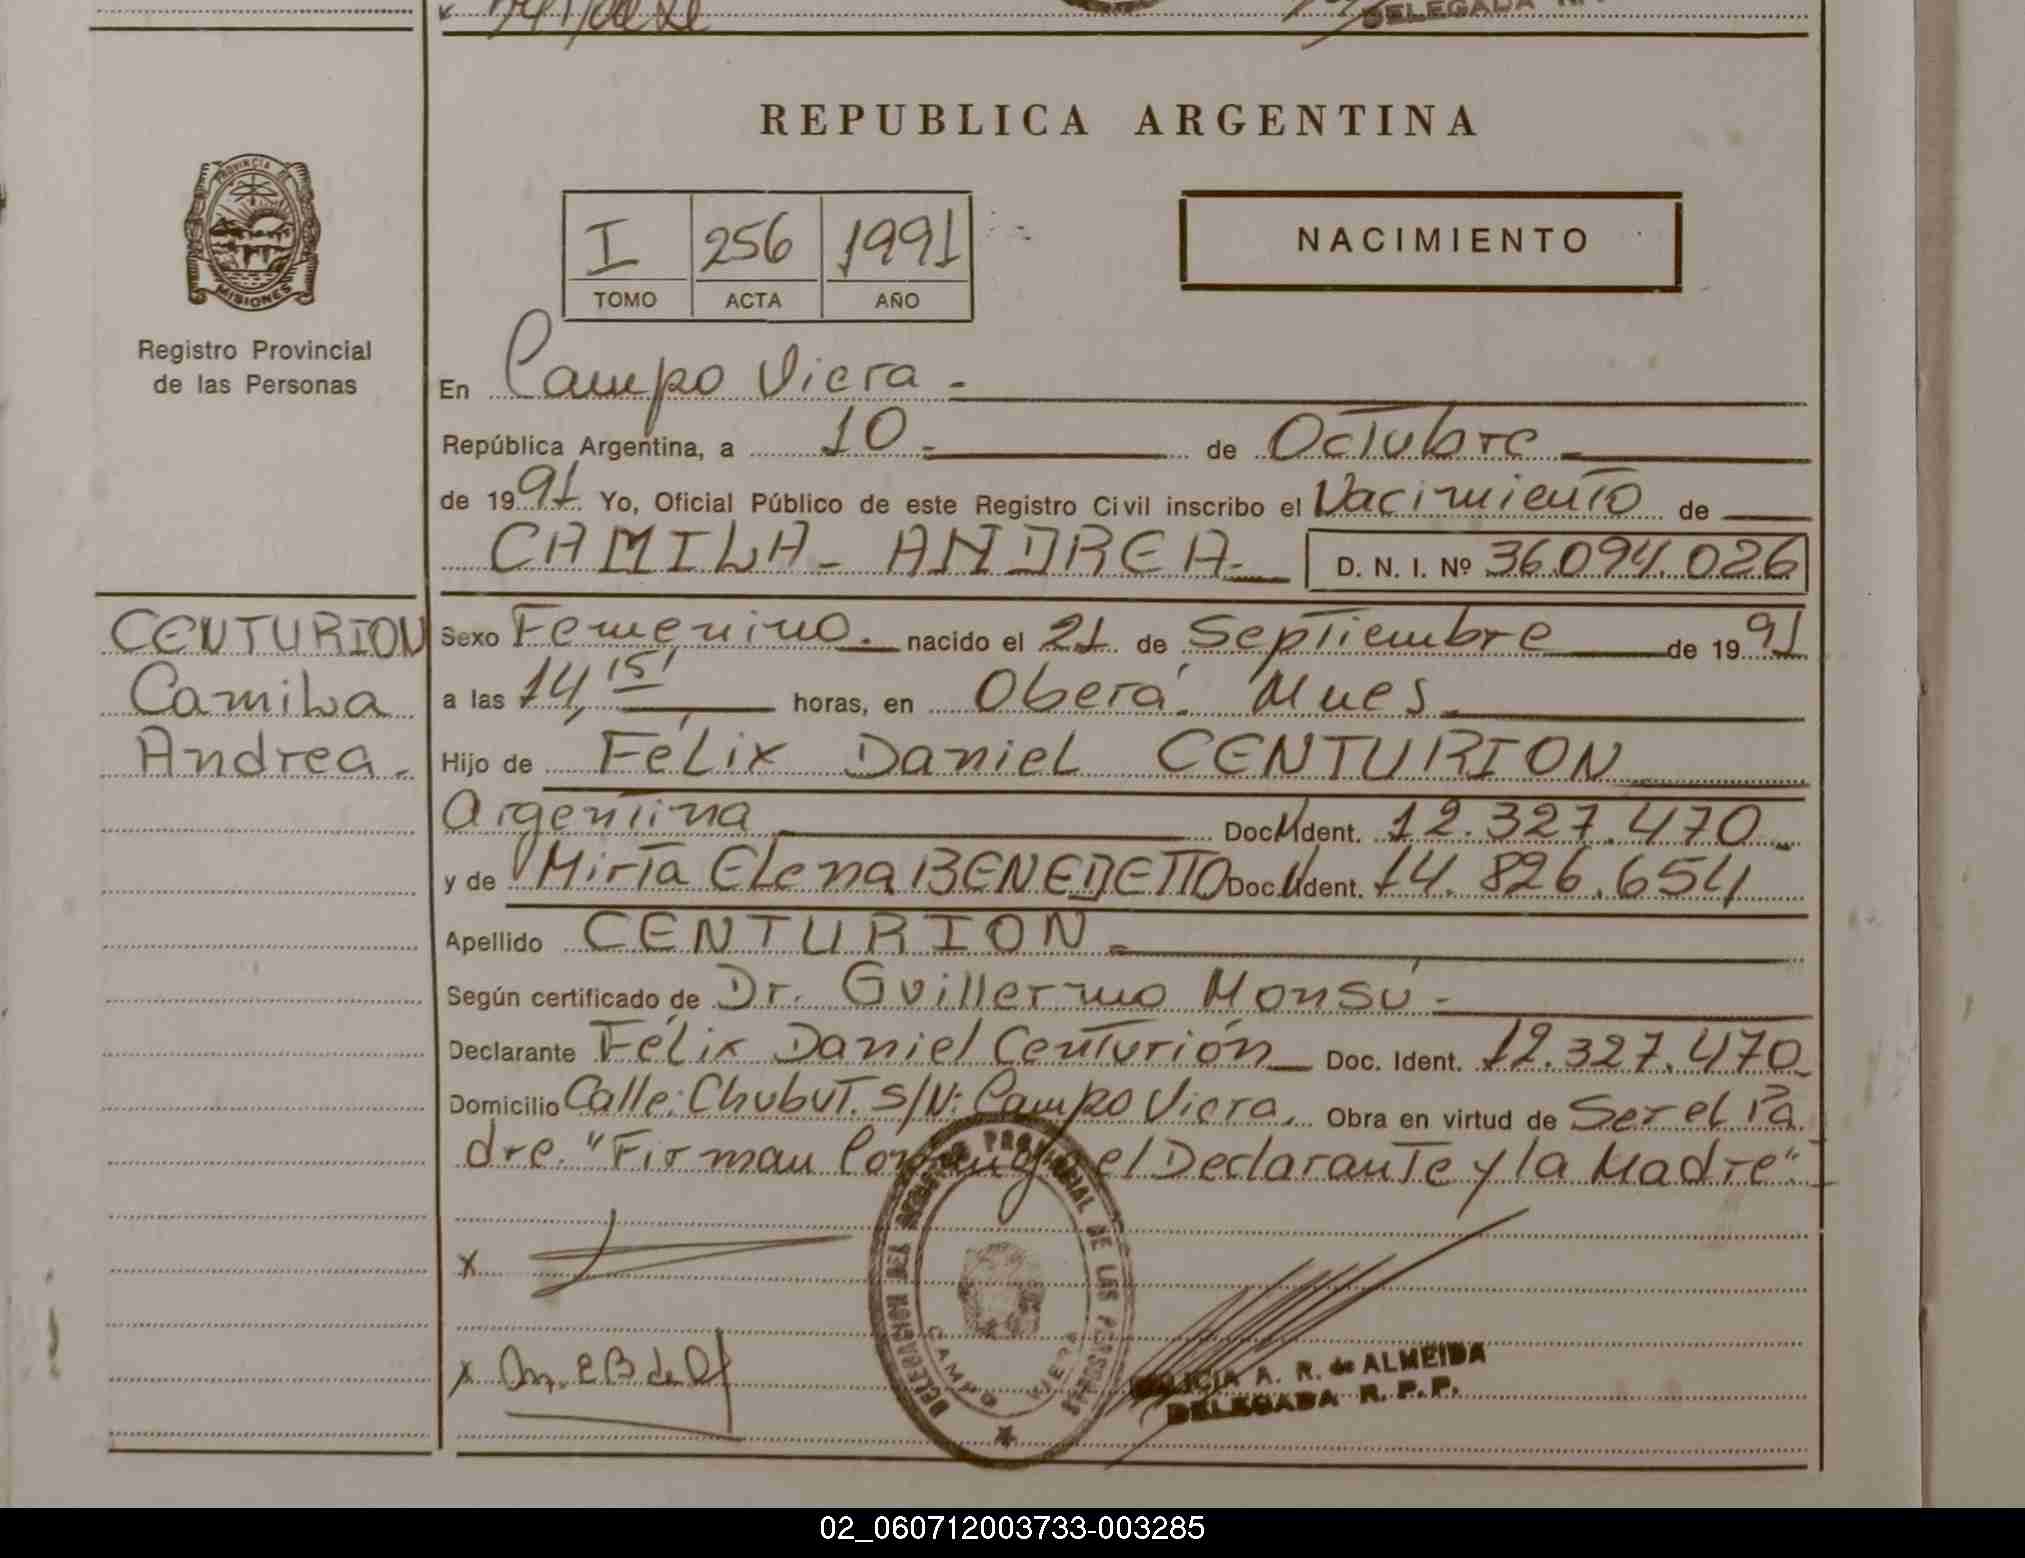 DELEGADA
REPUBLICA ARGENTINA
PROVINCIA DE
MISIONES
Registro Provincial
de las Personas
I 256 1991
TOMO ACTA AÑO
NACIMIENTO
En Campo Viera -
República Argentina, a 10 - de Octubre
de 1991. Yo, Oficial Público de este Registro Civil inscribo el Nacimiento de
CAMILA - ANDREA - D. N. I. Nº 36.094.026
CENTURION
Camila
Andrea.
Sexo Femenino. nacido el 21 de Septiembre de 1991
a las 14,15' horas, en Oberá Mnes.
Hijo de Félix Daniel CENTURION
Argentina Doc. Ident. 12.327.470
y de Mirta Elena BENEDETTO Doc. Ident. 14.826.654
Apellido CENTURION -
Según certificado de Dr. Guillermo Monsú -
Declarante Félix Daniel Centurión Doc. Ident. 12.327.470
Domicilio Calle: Chubut. S/N: Campo Viera. Obra en virtud de Ser el Pa
dre. "Firman Conmigo el Declarante y la Madre"
x
x
DELEGACION DEL REGISTRO PROVINCIAL DE LAS PERSONAS
CAMPO VIERA
ALICIA A. R. de ALMEIDA
DELEGADA R. P. P.
02_060712003733-003285